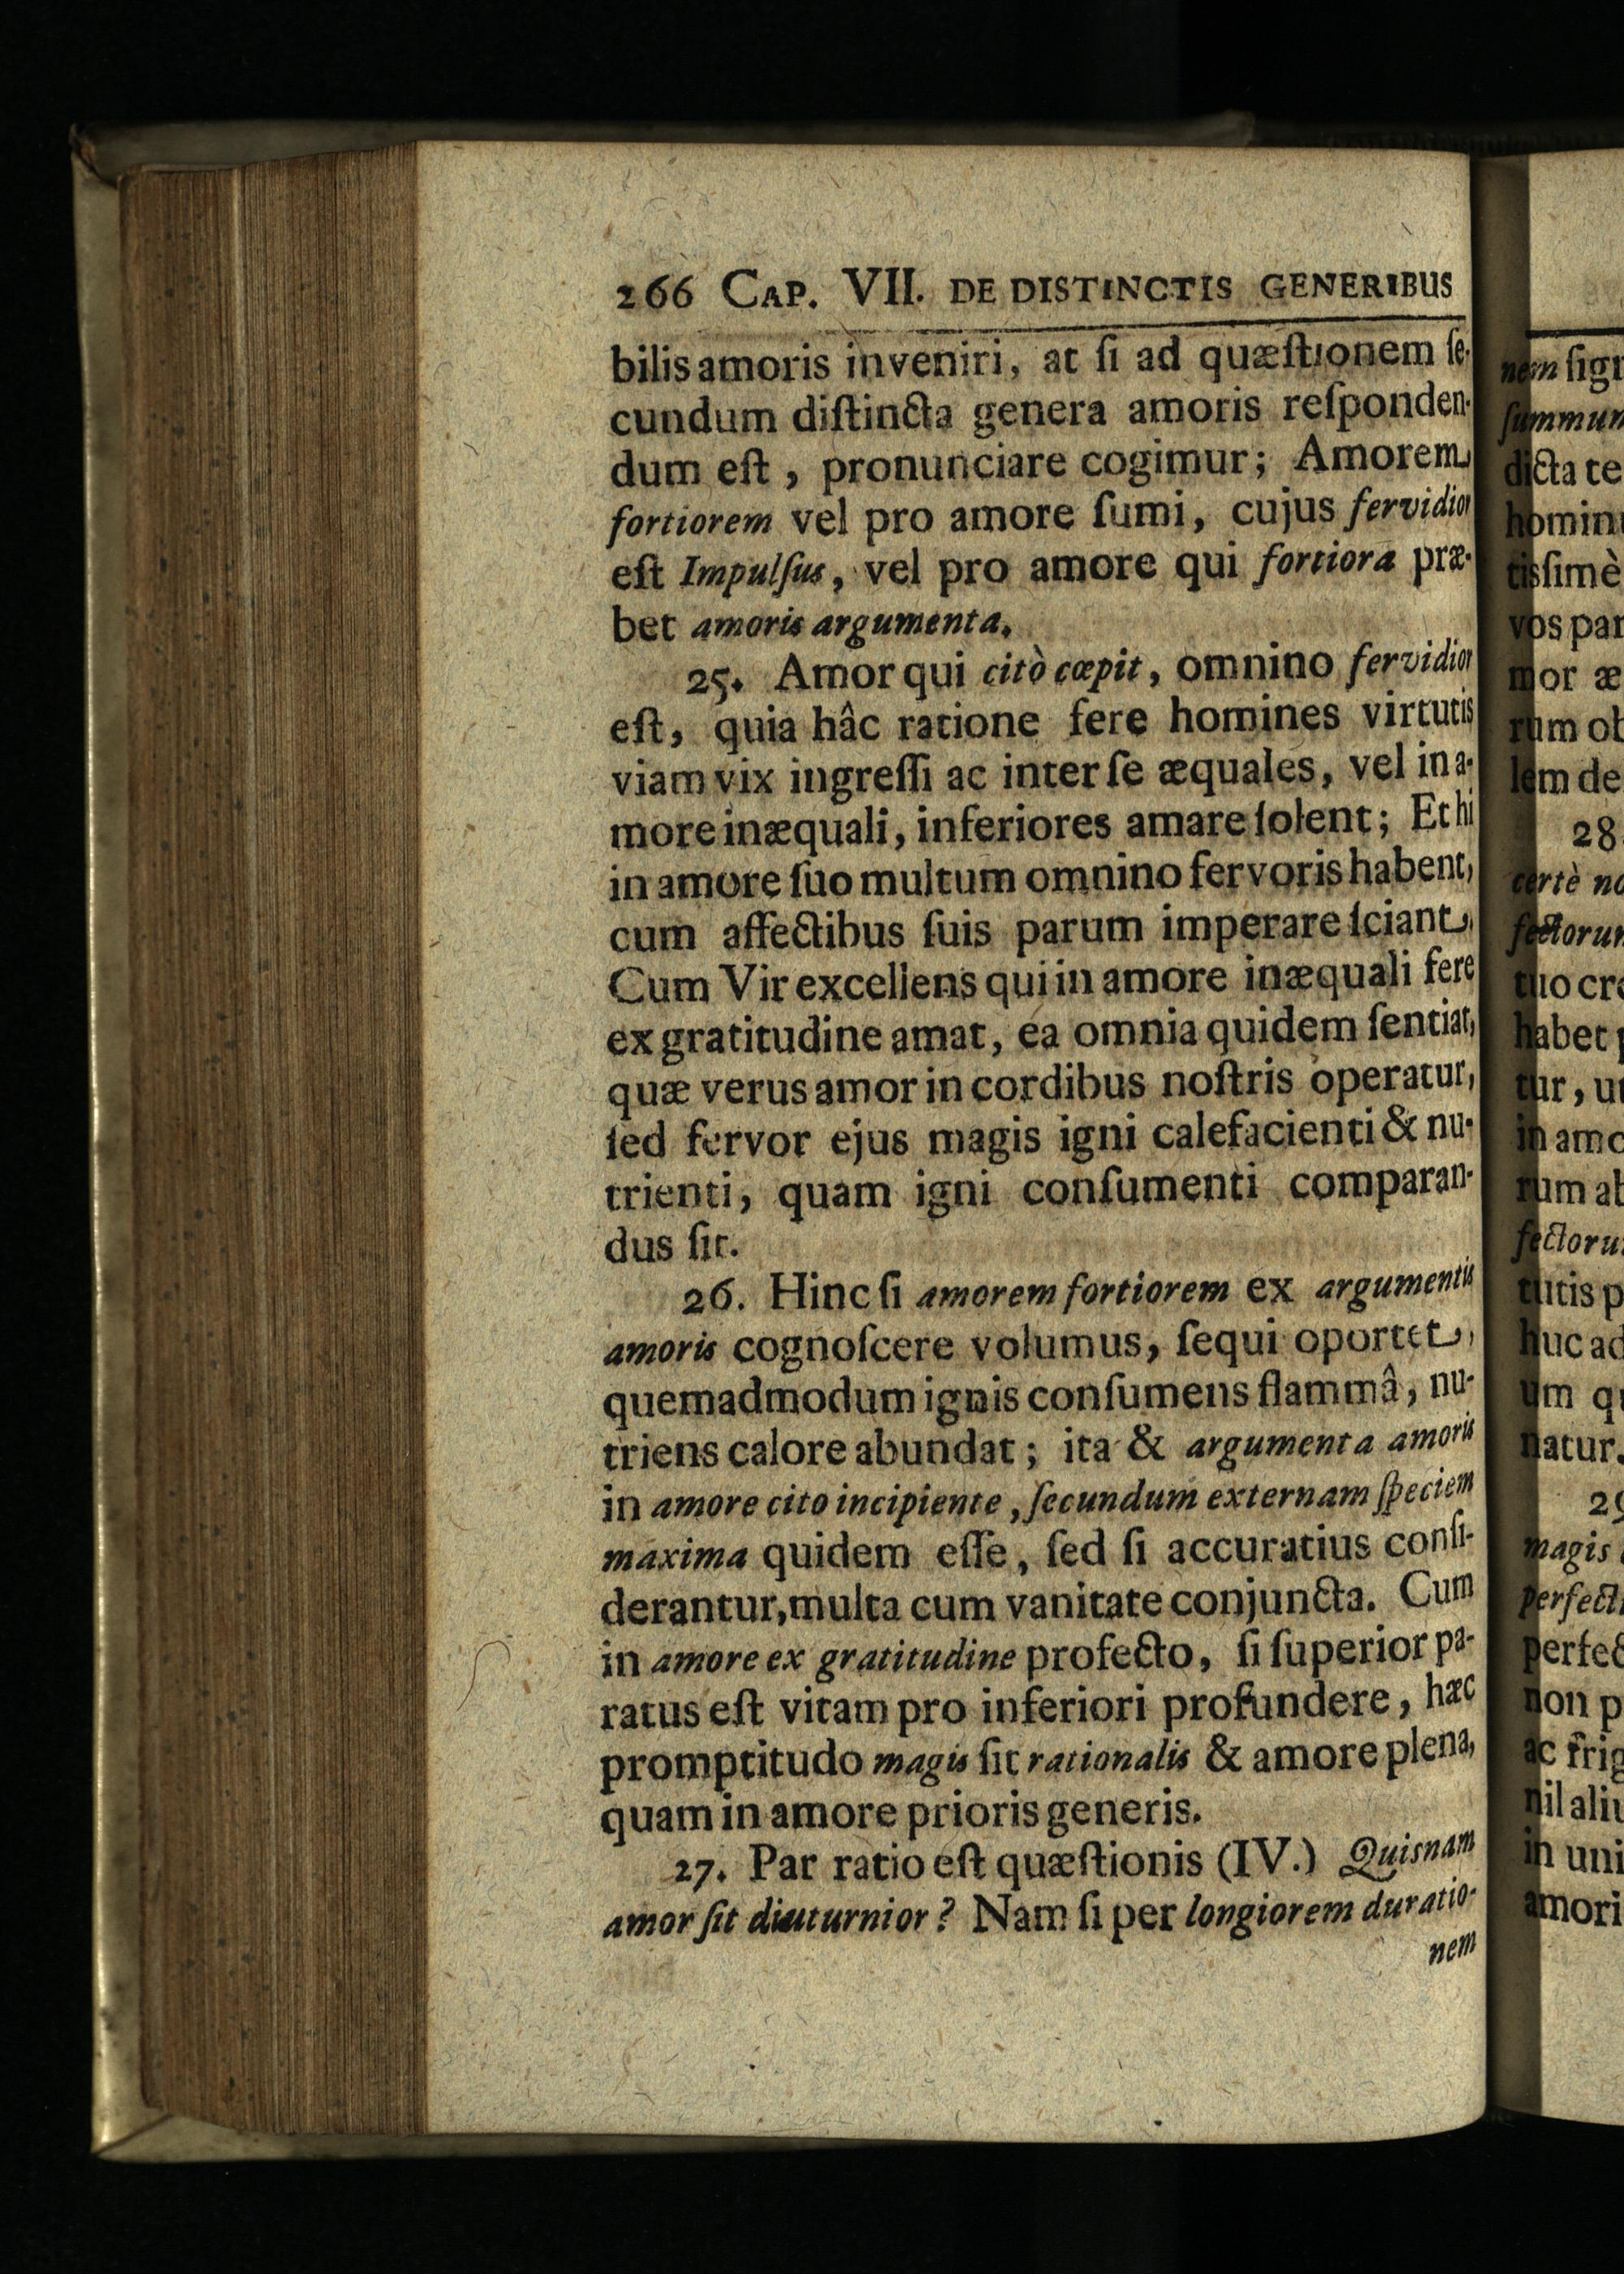 266 CAP. VII. DE DISTINCTIS GENERIBUS
bilis amoris inveniri, at ſi ad quæſtionem ſe-
cundum diſtincta genera amoris reſponden-
dum eſt, pronunciare cogimur; Amorem
fortiorem vel pro amore ſumi, cujus fervidior
eſt Impulſus, vel pro amore qui fortiora præ-
bet amoris argumenta.
25. Amor qui citò cœpit, omnino fervidior
eſt, quia hâc ratione fere homines virtutis
viam vix ingreſſi ac inter ſe æquales, vel in a-
more inæquali, inferiores amare ſolent; Et hi
in amore ſuo multum omnino fervoris habent,
cum affectibus ſuis parum imperare ſciant,
Cum Vir excellens qui in amore inæquali fere
ex gratitudine amat, ea omnia quidem ſentiat,
quæ verus amor in cordibus noſtris operatur,
ſed fervor ejus magis igni calefacienti & nu-
trienti, quam igni conſumenti comparan-
dus ſit.
26. Hinc ſi amorem fortiorem ex argumentis
amoris cognoſcere volumus, ſequi oportet,
quemadmodum ignis conſumens flammâ, nu-
triens calore abundat; ita & argumenta amoris
in amore cito incipiente, ſecundum externam ſpeciem
maxima quidem eſſe, ſed ſi accuratius conſi-
derantur, multa cum vanitate conjuncta. Cum
in amore ex gratitudine profecto, ſi ſuperior pa-
ratus eſt vitam pro inferiori profundere, hæc
promptitudo magis ſit rationalis & amore plena,
quam in amore prioris generis.
27. Par ratio eſt quæſtionis (IV.) Quisnam
amor ſit diuturnior? Nam ſi per longiorem duratio-
nem
nem
dicta te
tisſimè
vos
mor æ
lem de
28.
certè
habet
tur,
rum
tutis
huc
um
natur.
magis
non
ac
in